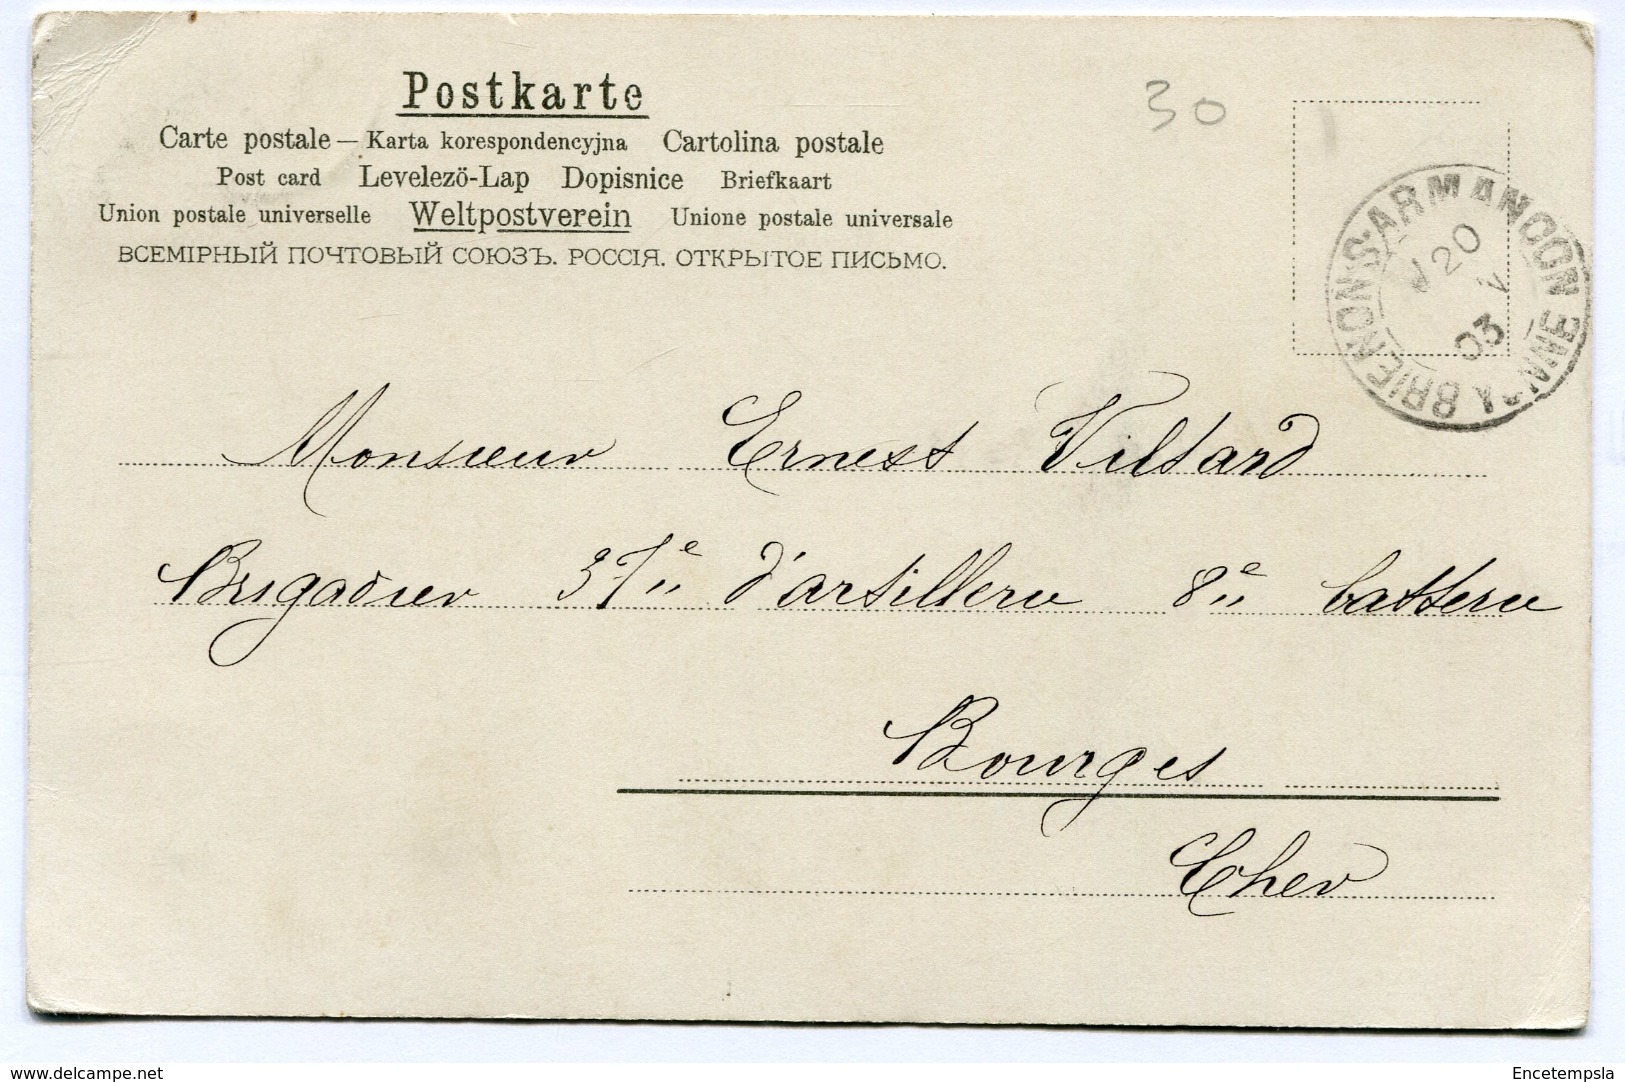 Postkarte
Carte postale — Karta korespondencyjna Cartolina postale
Post card Levelezö-Lap Dopisnice Briefkaart
Union postale universelle Weltpostverein Unione postale universale
ВСЕМІРНЫЙ ПОЧТОВЫЙ СОЮЗЪ. РОССІЯ. ОТКРЫТОЕ ПИСЬМО.
30
BRIENON-S-ARMANCON YONNE
20
03
Monsieur Ernest Viltard
Brigadier 37e d'artillerie 8e batterie
Bourges
Cher
www.delcampe.net
Encetempsla